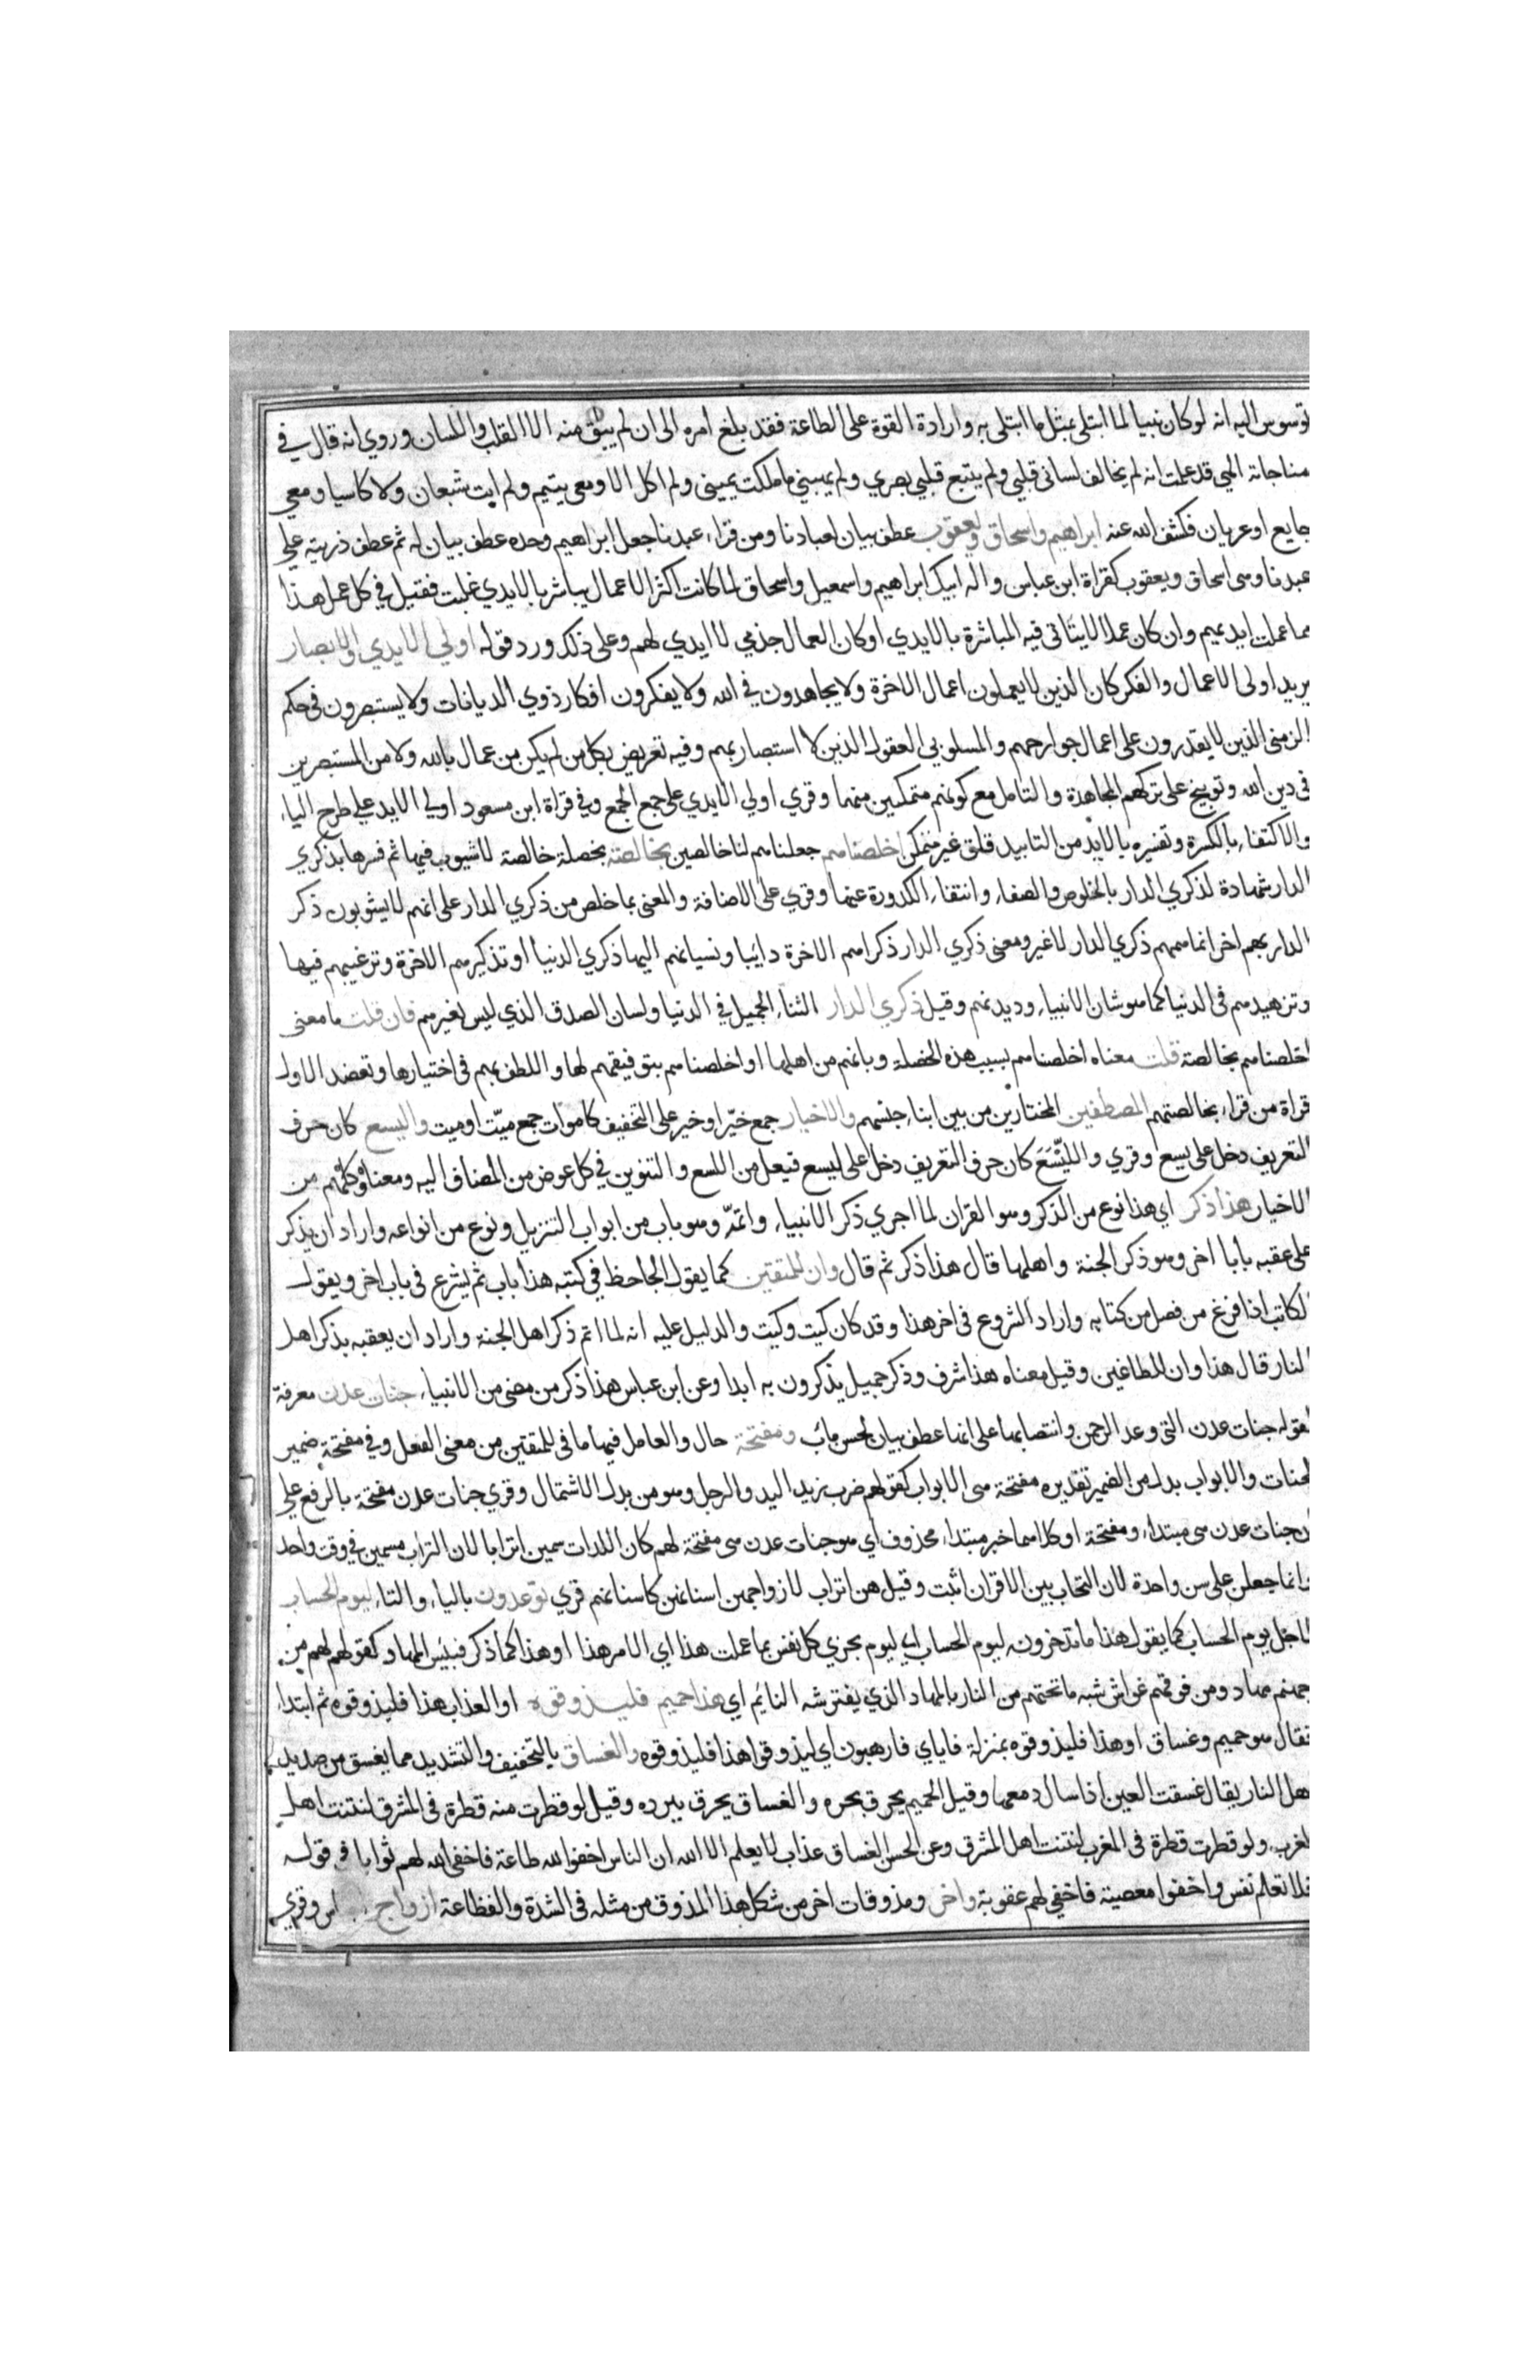 توسوس اليه انه لو كان نبيا لما ابتلى بمثل ما ابتلى به وارادة القوة على الطاعة فقد بلغ امره الى ان لم يبق منه الا القلب واللسان وروي انه قال في
مناجاته الهي قد علمت انه لم يخالف لساني قلبي ولم يتبع قلبي بصري ولم يهبني ما ملكت يميني ولم اكل الا ومعي يتيم ولم ابت شبعان ولا كاسيا ومعي
جايع او عريان فكشف الله عنه ابراهيم واسحاق ويعقوب عطف بيان لعبادنا ومن قراء عبدنا جعل ابراهيم وحده عطف بيان له ثم عطف ذريته على
عبدنا وهي اسحاق ويعقوب كقراة ابن عباس واله ابيك ابراهيم واسمعيل واسحاق لما كانت اكثر الاعمال يباشر بالايدي غلبت فقيل في كل عمل هذا
مما عملت ايديهم وان كان عملا لا يتاتى فيه المباشرة بالايدي او كان العمال جذمي لا ايدي لهم وعلى ذلك ورد قوله اولي الايدي والابصار
يريد اولى الاعمال والفكر كان الذين لا يعملون اعمال الاخرة ولا يجاهدون في الله ولا يفكرون افكار ذوي الديانات ولا يستبصرون في حكم
الزمني الذين لا يقدرون على اعمال جوارحهم والمسلوبي العقول الذين لا استصار بهم وفيه تعريض بكل من لم يكن من عمال بالله ولا من المستبصرين
في دين الله وتوبيخ على تركهم المجاهدة والتامل مع كونهم متمكنين منهما وقري اولي الايدي على جمع الجمع وفي قراة ابن مسعود اولي الايد على طرح الياء
والاكتفاء بالكسرة وتفسيره بالايد من التابيد قلق غير متمكن اخلصناهم جعلناهم لنا خالصين بخالصة بخصلة خالصة لا شيوب فيها ثم فسرها بذكري
الدار شهادة لذكري الدار بالخلوص والصفاء وانتفاء الكدورة عنها وقري على الاضافة والمعنى بما خلص من ذكري الدار على انهم لا يشوبون ذكر
الدار بهم اخر انما همهم ذكري الدار لا غير ومعنى ذكري الدار ذكراهم الاخرة دايبا ونسيانهم اليها ذكري الدنيا او تذكيرهم الاخرة وترغيبهم فيها
وتزهيدهم في الدنيا كما هو شان الانبياء وديدنهم وقيل ذكري الدار الثناء الجميل في الدنيا ولسان الصدق الذي ليس لغيرهم فان قلت ما معنى
اخلصناهم بخالصة قلت معناه اخلصناهم بسبب هذه الخصلة وبانهم من اهلها او اخلصناهم بتوفيقهم لها واللطف بهم في اختيارها وتعضد الاول
قراة من قراء بخالصتهم المصطفين المختارين من بين ابناء جنسهم والاخيار جمع خيّر او خير على التخفيف كاموات جمع ميّت او ميت واليسع كان حرف
التعريف دخل على يسع وقري والليّسَع كان حرف التعريف دخل على ليسع فيعل من اللسع والتنوين في كل عوض من المضاف اليه ومعناه وكلهم من
الاخيار هذا ذكر اي هذا نوع من الذكر وهو القران لما اجري ذكر الانبياء واتمّه وهو باب من ابواب التنزيل ونوع من انواعه واراد ان يذكر
على عقبه بابا اخر وهو ذكر الجنة واهلها قال هذا ذكر ثم قال وان للمتقين كما يقول الجاحظ في كتبه هذا باب ثم يشرع في باب اخر ويقول
الكاتب اذا فرغ من فصل من كتابه واراد الشروع في اخر هذا وقد كان كيت وكيت والدليل عليه انه لما اتم ذكر اهل الجنة واراد ان يعقبه بذكر اهل
النار قال هذا وان للطاغين وقيل معناه هذا شرف وذكر جميل يذكرون به ابدا وعن ابن عباس هذا ذكر من مضى من الانبياء جنات عدن معرفة
لقوله جنات عدن التي وعد الرحمن وانتصابها على انها عطف بيان لحسن ماب ومفتحة حال والعامل فيها ما في للمتقين من معنى الفعل وفي مفتحة ضمير
الجنات والابواب بدل من الضمير تقديره مفتحة هي الابواب كقولهم ضرب زيد اليد والرجل وهو من بدل الاشتمال وقري جنات عدن مفتحة بالرفع على
ان جنات عدن هي مبتداء ومفتحة او كلاهما خبر مبتداء محذوف اي هو جنات عدن هي مفتحة لهم كان اللدات سمين اترابا لان التراب مسهن في وقت واحد
وانما جعلن على سن واحدة لان التحاب بين الاقران اثبت وقيل هن اتراب لازواجهن اسنانهن كاسنانهم قري توعدون بالياء والتاء ليوم الحساب
لاجل يوم الحساب كما يقول هذا ما تدخرونه ليوم الحساب اي ليوم يجزي كل نفس بما عملت هذا اي الامر هذا او هذا كما ذكر فبيس المهاد كقولهم لهم من
جهنم مهاد ومن فوقهم غواش شبه ما تحتهم من النار بالمهاد الذي يفترشه النايم اي هذا حميم فليذوقوه او العذاب هذا فليذوقوه ثم ابتداء
فقال هو حميم وغساق او هذا فليذوقوه بمنزلة فاياي فارهبون اي ليذوقوا هذا فليذوقوه والغساق بالتخفيف والتشديد مما يغسق من صديد
اهل النار يقال غسقت العين اذا سال دمعها وقيل الحميم يحرق بحره والغساق يحرق ببرده وقيل لو قطرت منه قطرة في المشرق لنتنت اهل
المغرب ولو قطرت قطرة في المغرب لنتنت اهل المشرق وعن الحسن الغساق عذاب لا يعلم الا الله ان الناس اخفوا لله طاعة فاخفى الله لهم ثوابا في قوله
فلا تعلم نفس واخفوا معصية فاخفي لهم عقوبة واخر ومذوقات اخر من شكل هذا المذوق من مثله في الشدة والفظاعة ازواج اجناس وقري